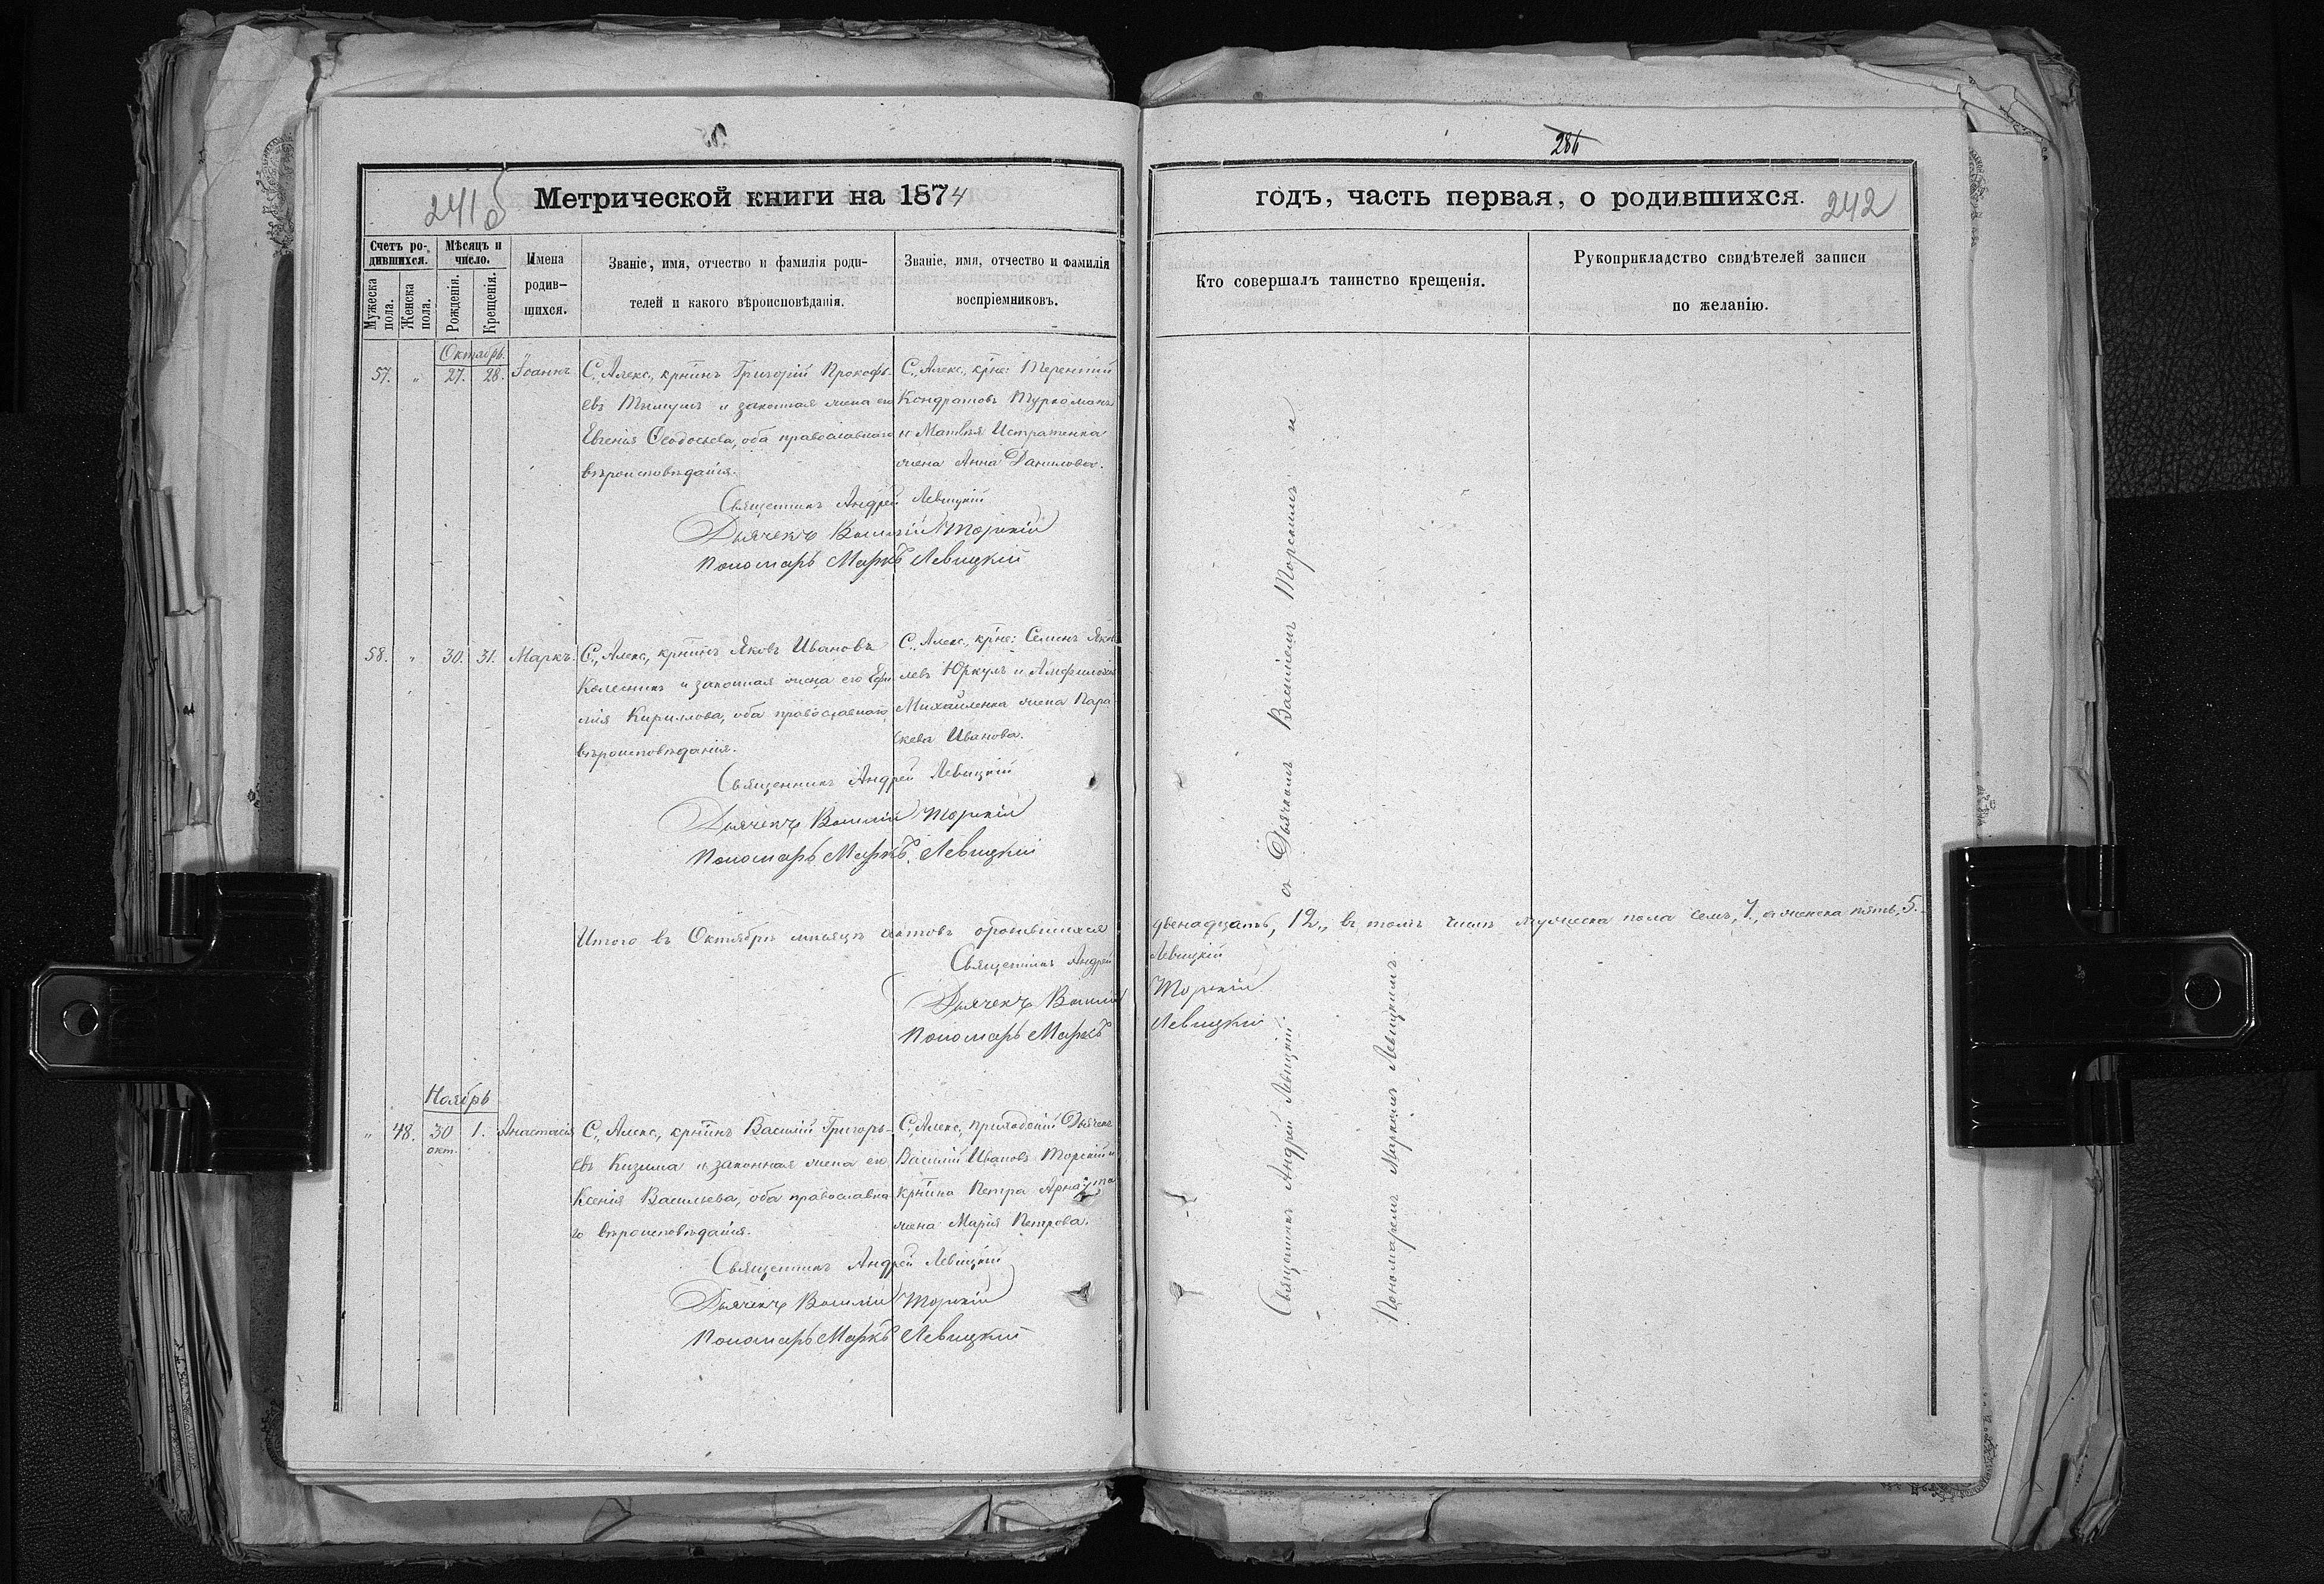 286
241б Метрической книги на 1874
годъ, часть первая, о родившихся. 242
Счетъ ро-
дившихся.
Мужеска
пола.
Женска
пола.
Мѣсяцъ и
число.
Рожденія.
Крещенія.
Имена
родив-
шихся.
Званіе, имя, отчество и фамилія роди-
телей и какого вѣроисповѣданія.
Званіе, имя, отчество и фамилія
воспріемниковъ.
Кто совершалъ таинство крещенія.
Рукоприкладство свидѣтелей записи
по желанію.
Октябрь.
57. „ 27. 28. Іоаннъ
С., Алекс., крнинъ Григорій Прокофь-
евъ и законная жена его
Евгенія Ѳеодосьева, оба православнаго
вѣроисповѣданія.
С., Алекс., крне: Терентій
Кондратовъ Туркоманъ
и Матвѣя Истратенка
жена Анна Данилова.
Священникъ Андрей Левицкій
Дьячекъ Василій Торскій
Пономарь Маркъ Левицкій
58. „ 30. 31. Маркъ.
С., Алекс., крнинъ Яковъ Ивановъ
Колесникъ и законная жена его Ефи
мія Кириллова, оба православнаго
вѣроисповѣданія.
С., Алекс., крне: Семенъ Яков
левъ Юркулъ и Амфилохія
Михайленка жена Пара
скева Иванова.
Священникъ Андрей Левицкій
Дьячекъ Василій Торскій
Пономарь Маркъ Левицкій
Итого въ Октябрѣ мѣсяцѣ актовъ ородившихся двенадцать, 12., въ томъ числѣ мужеска пола семъ, 7., а женска пять, 5.
Священникъ Андрей Левицкій
Дьячекъ Василій Торскій
Пономарь Маркъ Левицкій
Ноябрь
„ 48. 30 1. Анастасія
окт.
С., Алекс., крнинъ Василій Григорь-
евъ Кизима и законная жена его
Ксенія Васильева, оба православна
го вѣроисповѣданія.
С., Алекс., приходскій Дьячекъ
Василій Ивановъ Торскій и
крнина Петра Арнаута
жена Марія Петрова.
Священникъ Андрей Левицкій
Дьячекъ Василій Торскій
Пономарь Маркъ Левицкій
Священникъ Андрей Левицкій съ Дьячкомъ Василіемъ Торскимъ и
Пономаремъ Маркомъ Левицкимъ.